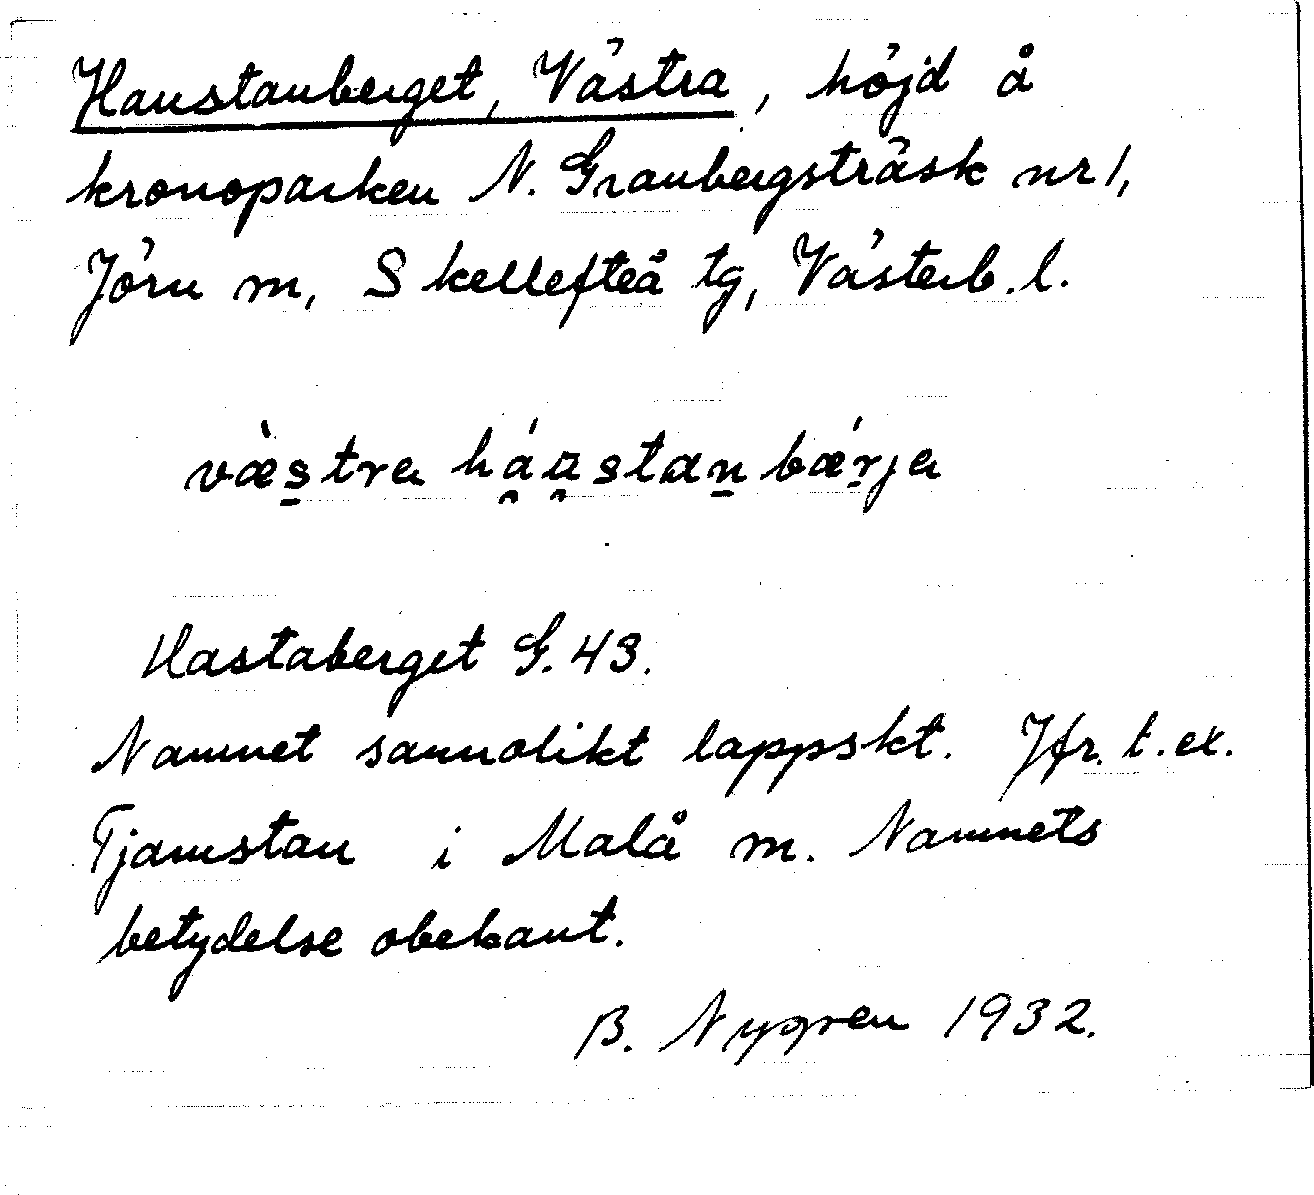 Haustanberget, Västra, höjd å
kronoparken N. Granbergsträsk nr 1,
Jörn m, Skellefteå tg, Västerb. l.
væ̀s̠tra há̯ɑ̯stan̠bǽr̠ja
Hastaberget G. 43.
Namnet sannolikt lappskt. Jfr. t. ex.
Tjamstan i Malå m. Namnets
betydelse obekant.
B. Nygren 1932.